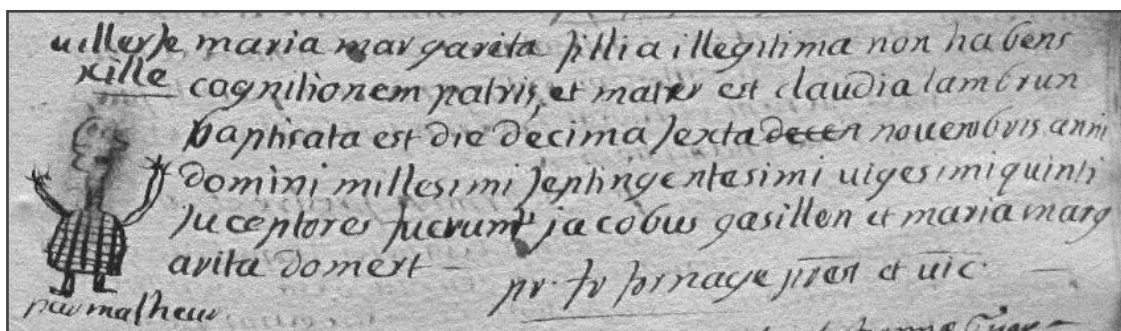 uillerse maria margarita fillia illegitima non habens
xille cognitionem patris, et mater est claudia lambrun
baptisata est die decima sexta decen nouembris anni
domini millesimi septingentesimi uigesimi quinti
suceptores fuerunt jacobus gasillon et maria marg
arita domert
pr. fr fornaye prest et uic.
par malheur